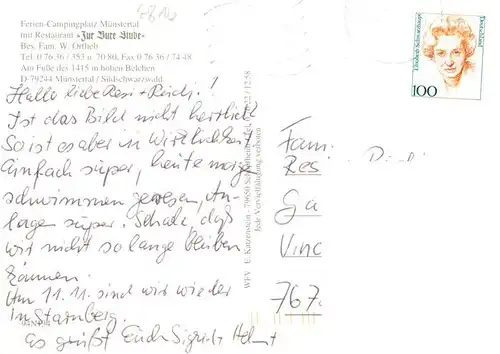 Ferien-Campingplatz Münstertal
mit Restaurant "Zur Burg Linde"
Bes. Fam. W. Ortlieb
Tel 0 76 36 / 353 u. 70 80, Fax 0 76 36 / 74 48
Am Fuße des 1415 m hohen Belchen
D-79244 Münstertal / Südschwarzwald
Hallo liebe Resi + Reich. !
Ist das Bild nicht herrlich!
So ist es aber in Wirklichkeit
Einfach super, heute morgen
schwimmen gewesen, An-
lagen super. Schade, daß
wir nicht so lange bleiben
können.
Am 11.11. sind wir wieder
in Starnberg.
Es grüßt Euch Sigrid + Helmut
WFV E. Katzenstein - 79650 Schopfheim
Jede Vervielfältigung verboten
Elisabeth Schwarzhaupt
Deutschland
100
Fam.
Resi
Ga
Vinc
767.